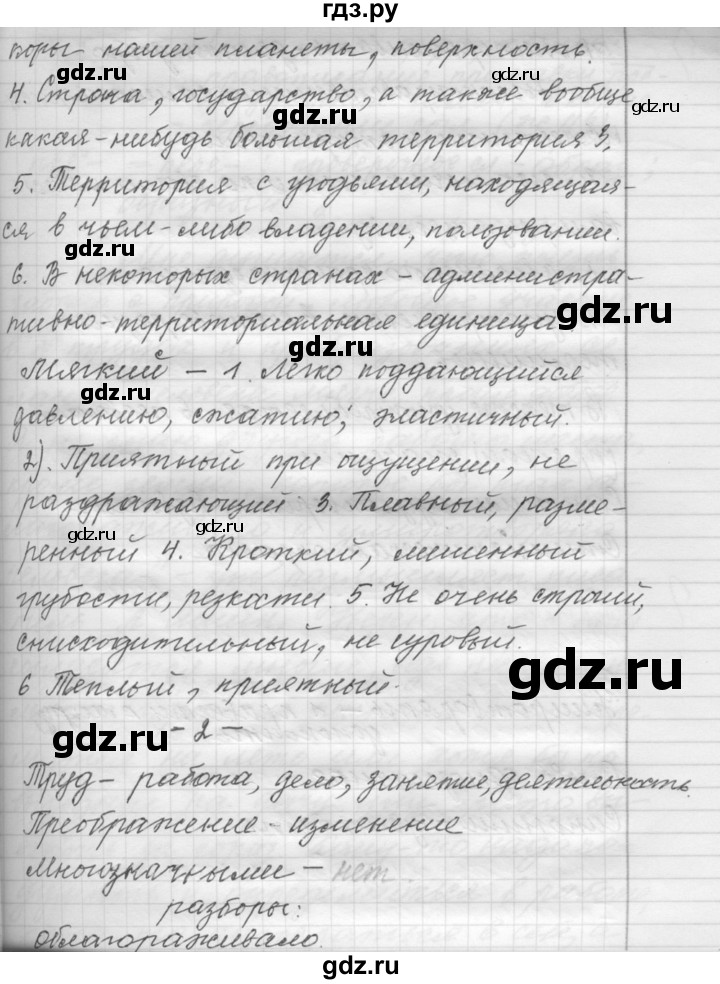 гдз.ру
коры нашей планеты, поверхность.
gdz.ru
gdz.ru
4. Страна, государство, а также вообще
gdz.ru
gdz.ru
какая-нибудь большая территория 3,
5. Территория с угодьями, находящая-
ся в чьем-либо владении, пользовании.
gdz.ru
6. В некоторых странах - администра-
gdz.ru
тивно-территориальная единица.
gdz.ru
Мягкий - 1. Легко поддающийся
gdz.ru
давлению, сжатию; эластичный.
gdz.ru
2). Приятный при ощущении, не
раздражающий 3. Плавный, разме-
gdz.ru
gdz.ru
ренный 4. Кроткий, лишенный
грубости, резкости. 5. Не очень строгий,
снисходительный, не суровый.
gdz.ru
6 Теплый, приятный.
gdz.ru
- 2 -
Труд - работа, дело, занятие, деятельность.
Преображение - изменение
Многозначными - нет.
разборы:
облагораживало.
gdz.ru